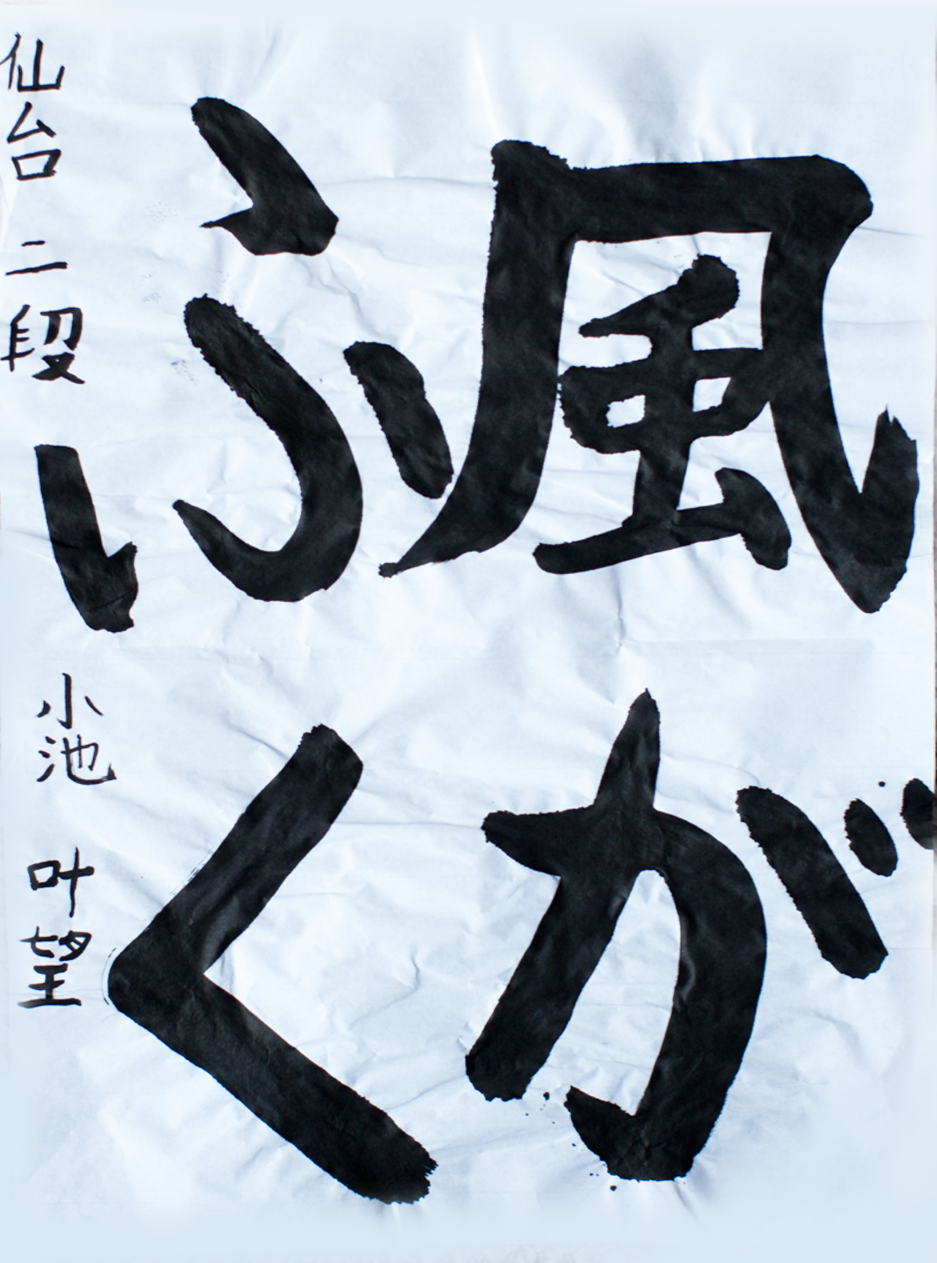 風が
ふく
仙台 二段 小池 叶望